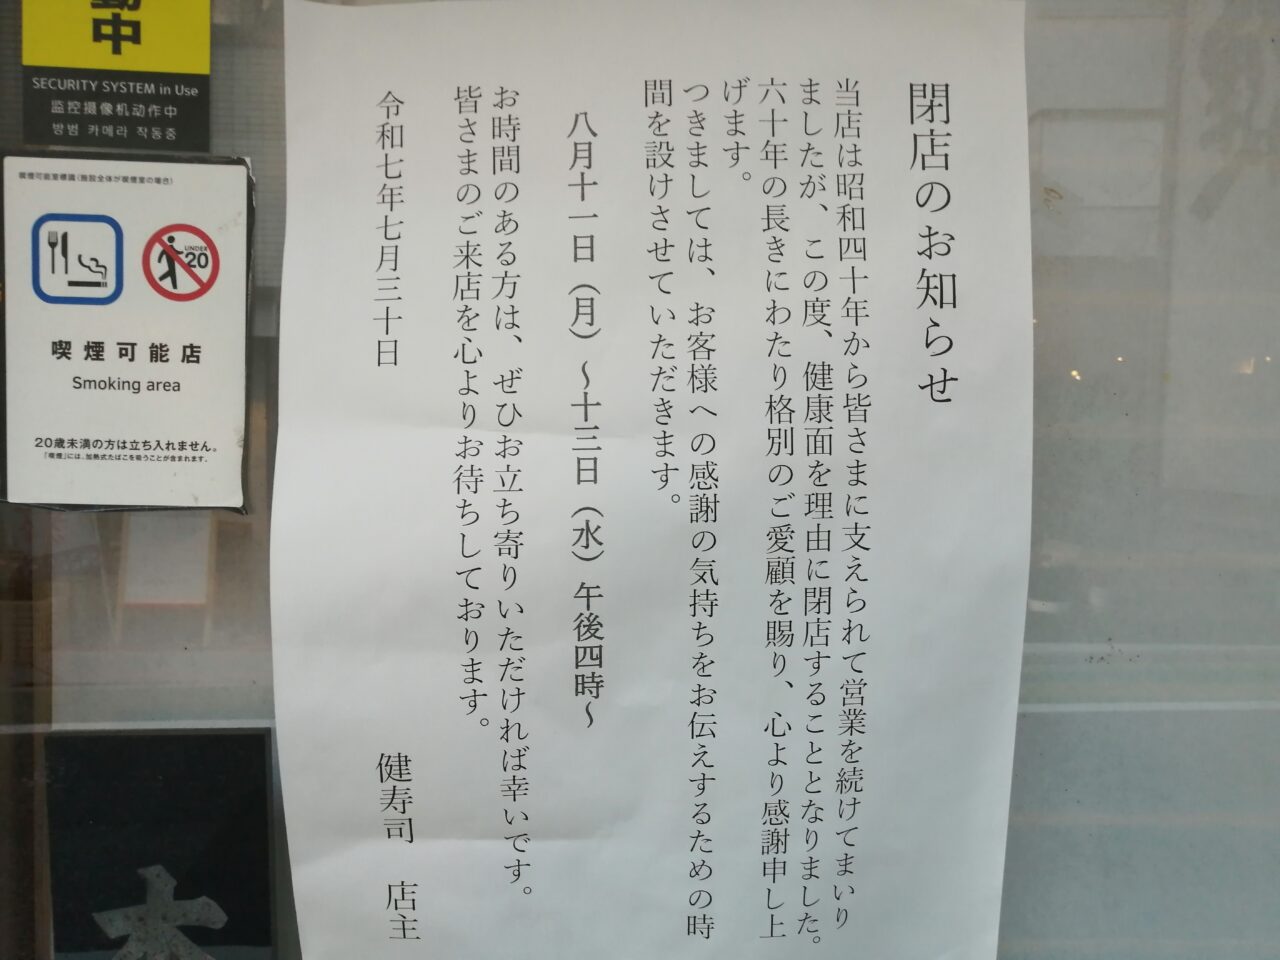 閉店のお知らせ
当店は昭和四十年から皆さまに支えられて営業を続けてまいり
ましたが、この度、健康面を理由に閉店することとなりました。
六十年の長きにわたり格別のご愛顧を賜り、心より感謝申し上
げます。
つきましては、お客様への感謝の気持ちをお伝えするための時
間を設けさせていただきます。
八月十一日（月）～十三日（水）午後四時～
お時間のある方は、ぜひお立ち寄りいただければ幸いです。
皆さまのご来店を心よりお待ちしております。
令和七年七月三十日
健寿司 店主
動中
SECURITY SYSTEM in Use
监控摄像机动作中
방범 카메라 작동중
喫煙可能室標識(施設全体が喫煙室の場合)
UNDER
20
喫煙可能店
Smoking area
20歳未満の方は立ち入れません。
「喫煙」には、加熱式たばこを吸うことが含まれます。